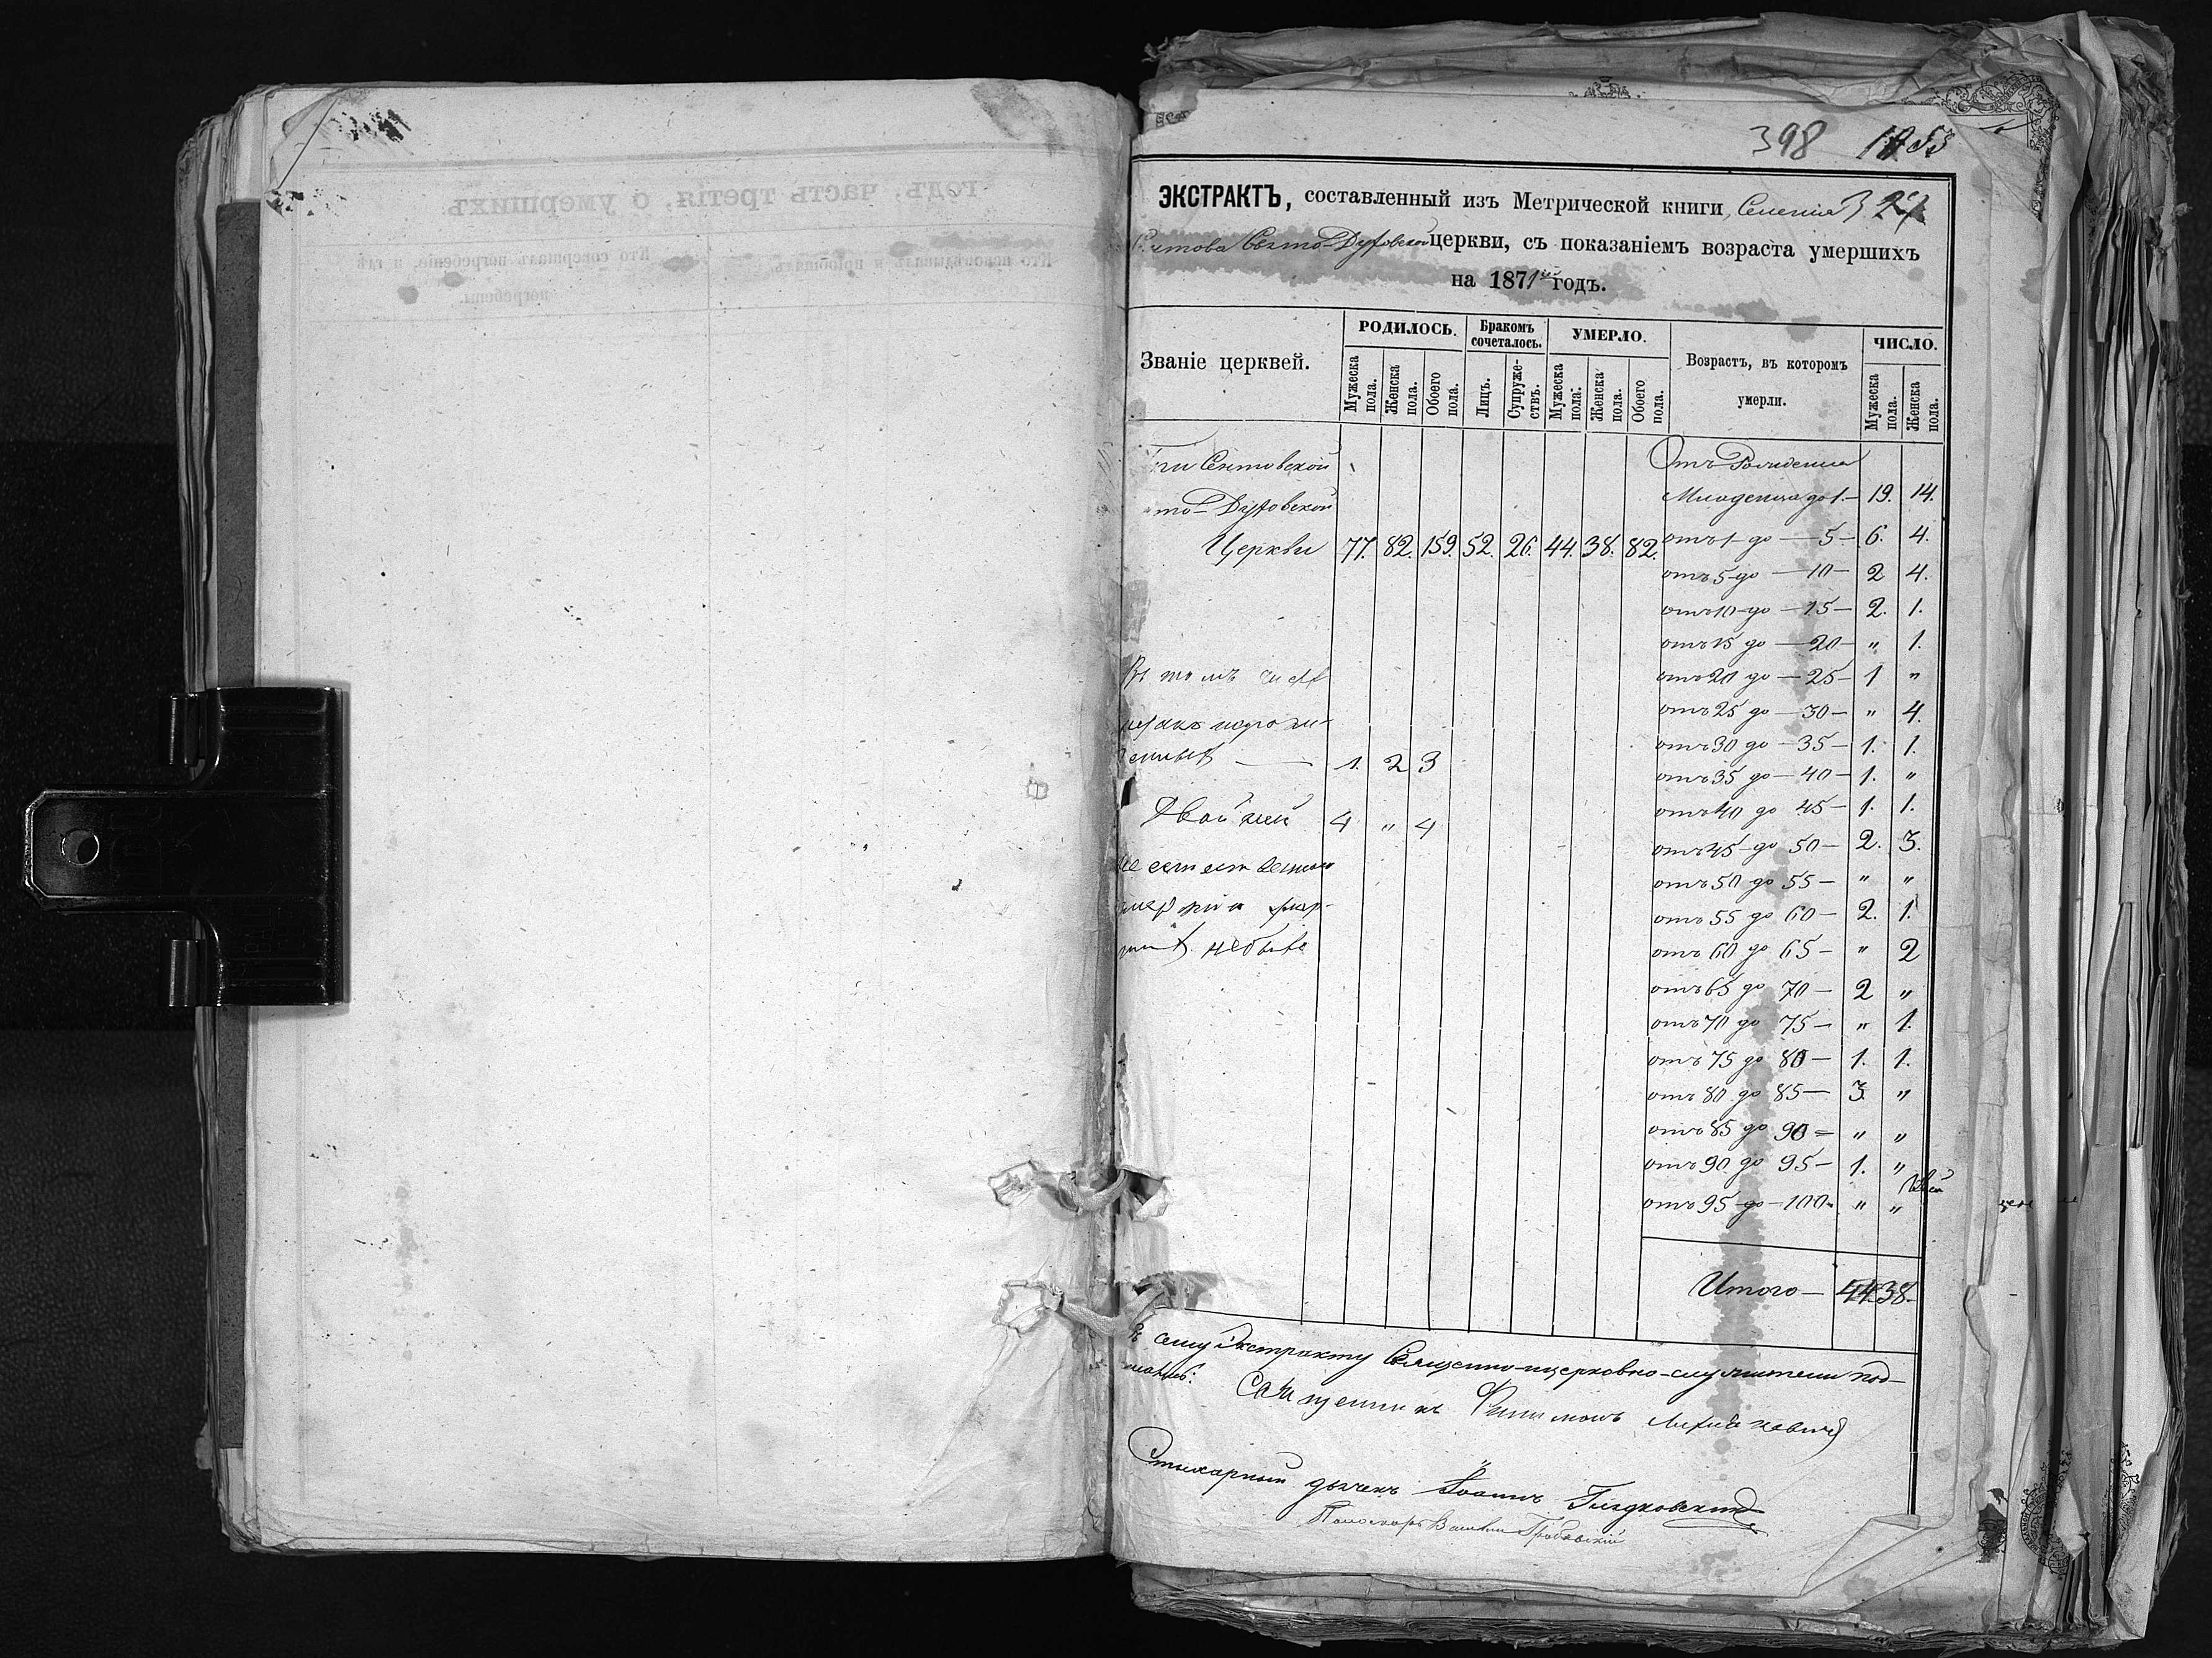 398
ЭКСТРАКТЪ, составленный изъ Метрической книги, Селенія
Свято-Духовской церкви, съ показаніемъ возраста умершихъ
на 1871й годъ.
Званіе церквей.
РОДИЛОСЬ.
Мужеска пола.
Женска пола.
Обоего пола.
Бракомъ сочеталось.
Лицъ.
Супруже-ствъ.
УМЕРЛО.
Мужеска пола.
Женска пола.
Обоего пола.
Возрастъ, въ которомъ
умерли.
ЧИСЛО.
Мужеска пола.
Женска пола.
Духовской
Церкви 77. 82. 159. 52. 26. 44. 38. 82.
Въ томъ числѣ
1. 2 3
Двойней 4 " 4
небыло
Отъ Рожденія
Младенца до 1.— 19. 14.
отъ 1 до — 5— 6. 4.
отъ 5 до — 10— 2 4.
отъ 10 до — 15— 2. 1.
отъ 15 до — 20— " 1.
отъ 20 до — 25— 1 "
отъ 25 до — 30— " 4.
отъ 30 до — 35— 1. 1.
отъ 35 до — 40— 1. "
отъ 40 до 45— 1. 1.
отъ 45 до 50— 2. 3.
отъ 50 до 55— " "
отъ 55 до 60— 2. 1.
отъ 60 до 65— " 2
отъ 65 до 70— 2 "
отъ 70 до 75— " 1.
отъ 75 до 80— 1. 1.
отъ 80 до 85— 3. "
отъ 85 до 90= " "
отъ 90 до 95— 1. "
отъ 95 до — 100— " "
Итого — 44. 38.
сему Экстракту Священно-церковно-служители под-
Священникъ Филимонъ
Стихарный дьячекъ Іоаннъ
Пономарь